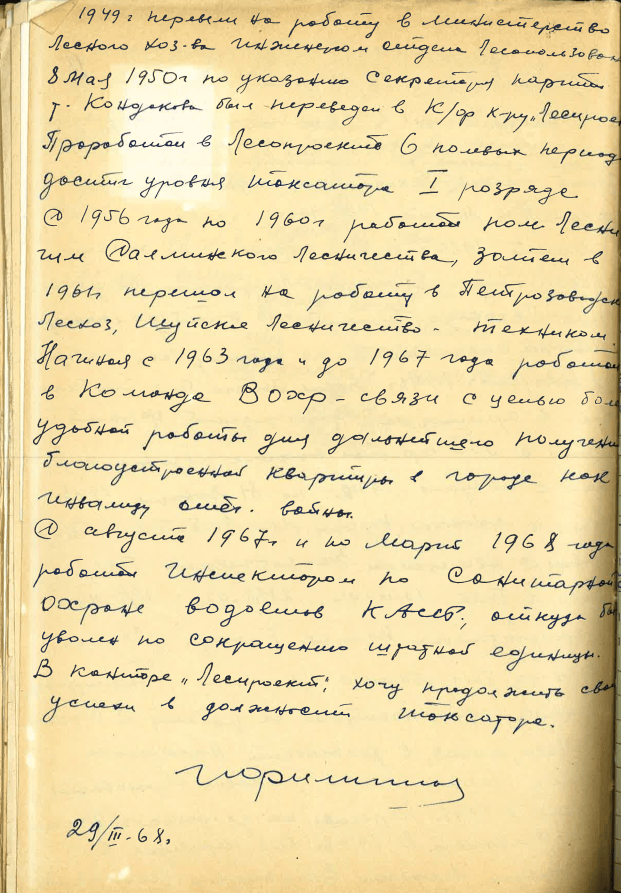 1949 г перевели на работу в Министерство
Лесного хоз-ва инженером отдела Лесопользован
8 мая 1950 г по указанию Секретаря партии
т. Кондакова был переведен в К/ф к-ру „Леспроек
Проработал в Леспроекте 6 полевых период
достиг уровня таксатора I разряда
С 1956 года по 1960 г работал пом Лесни
чим Лесничества, затем в
1961 г перешол на работу в Петрозаводск
Лесхоз, Шуйское Лесничество - техником.
Начиная с 1963 года и до 1967 года работал
в Команде ВОХР - связи с целью бол
удобной работы для дальнейшего получени
благоустроенной квартиры в городе как
инвалиду отеч. войны.
С августа 1967 г и по Март 1968 года
работал Инспектором по Санитарной
Охране водоемов КАССР, откуда бы
уволен по сокращению штатной единицы.
В конторе „Леспроект", хочу продолжить сво
успехи в должности таксатора.
29/III-68.